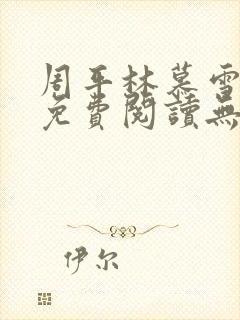 周平林慕雪
免費閱讀無
伊尔